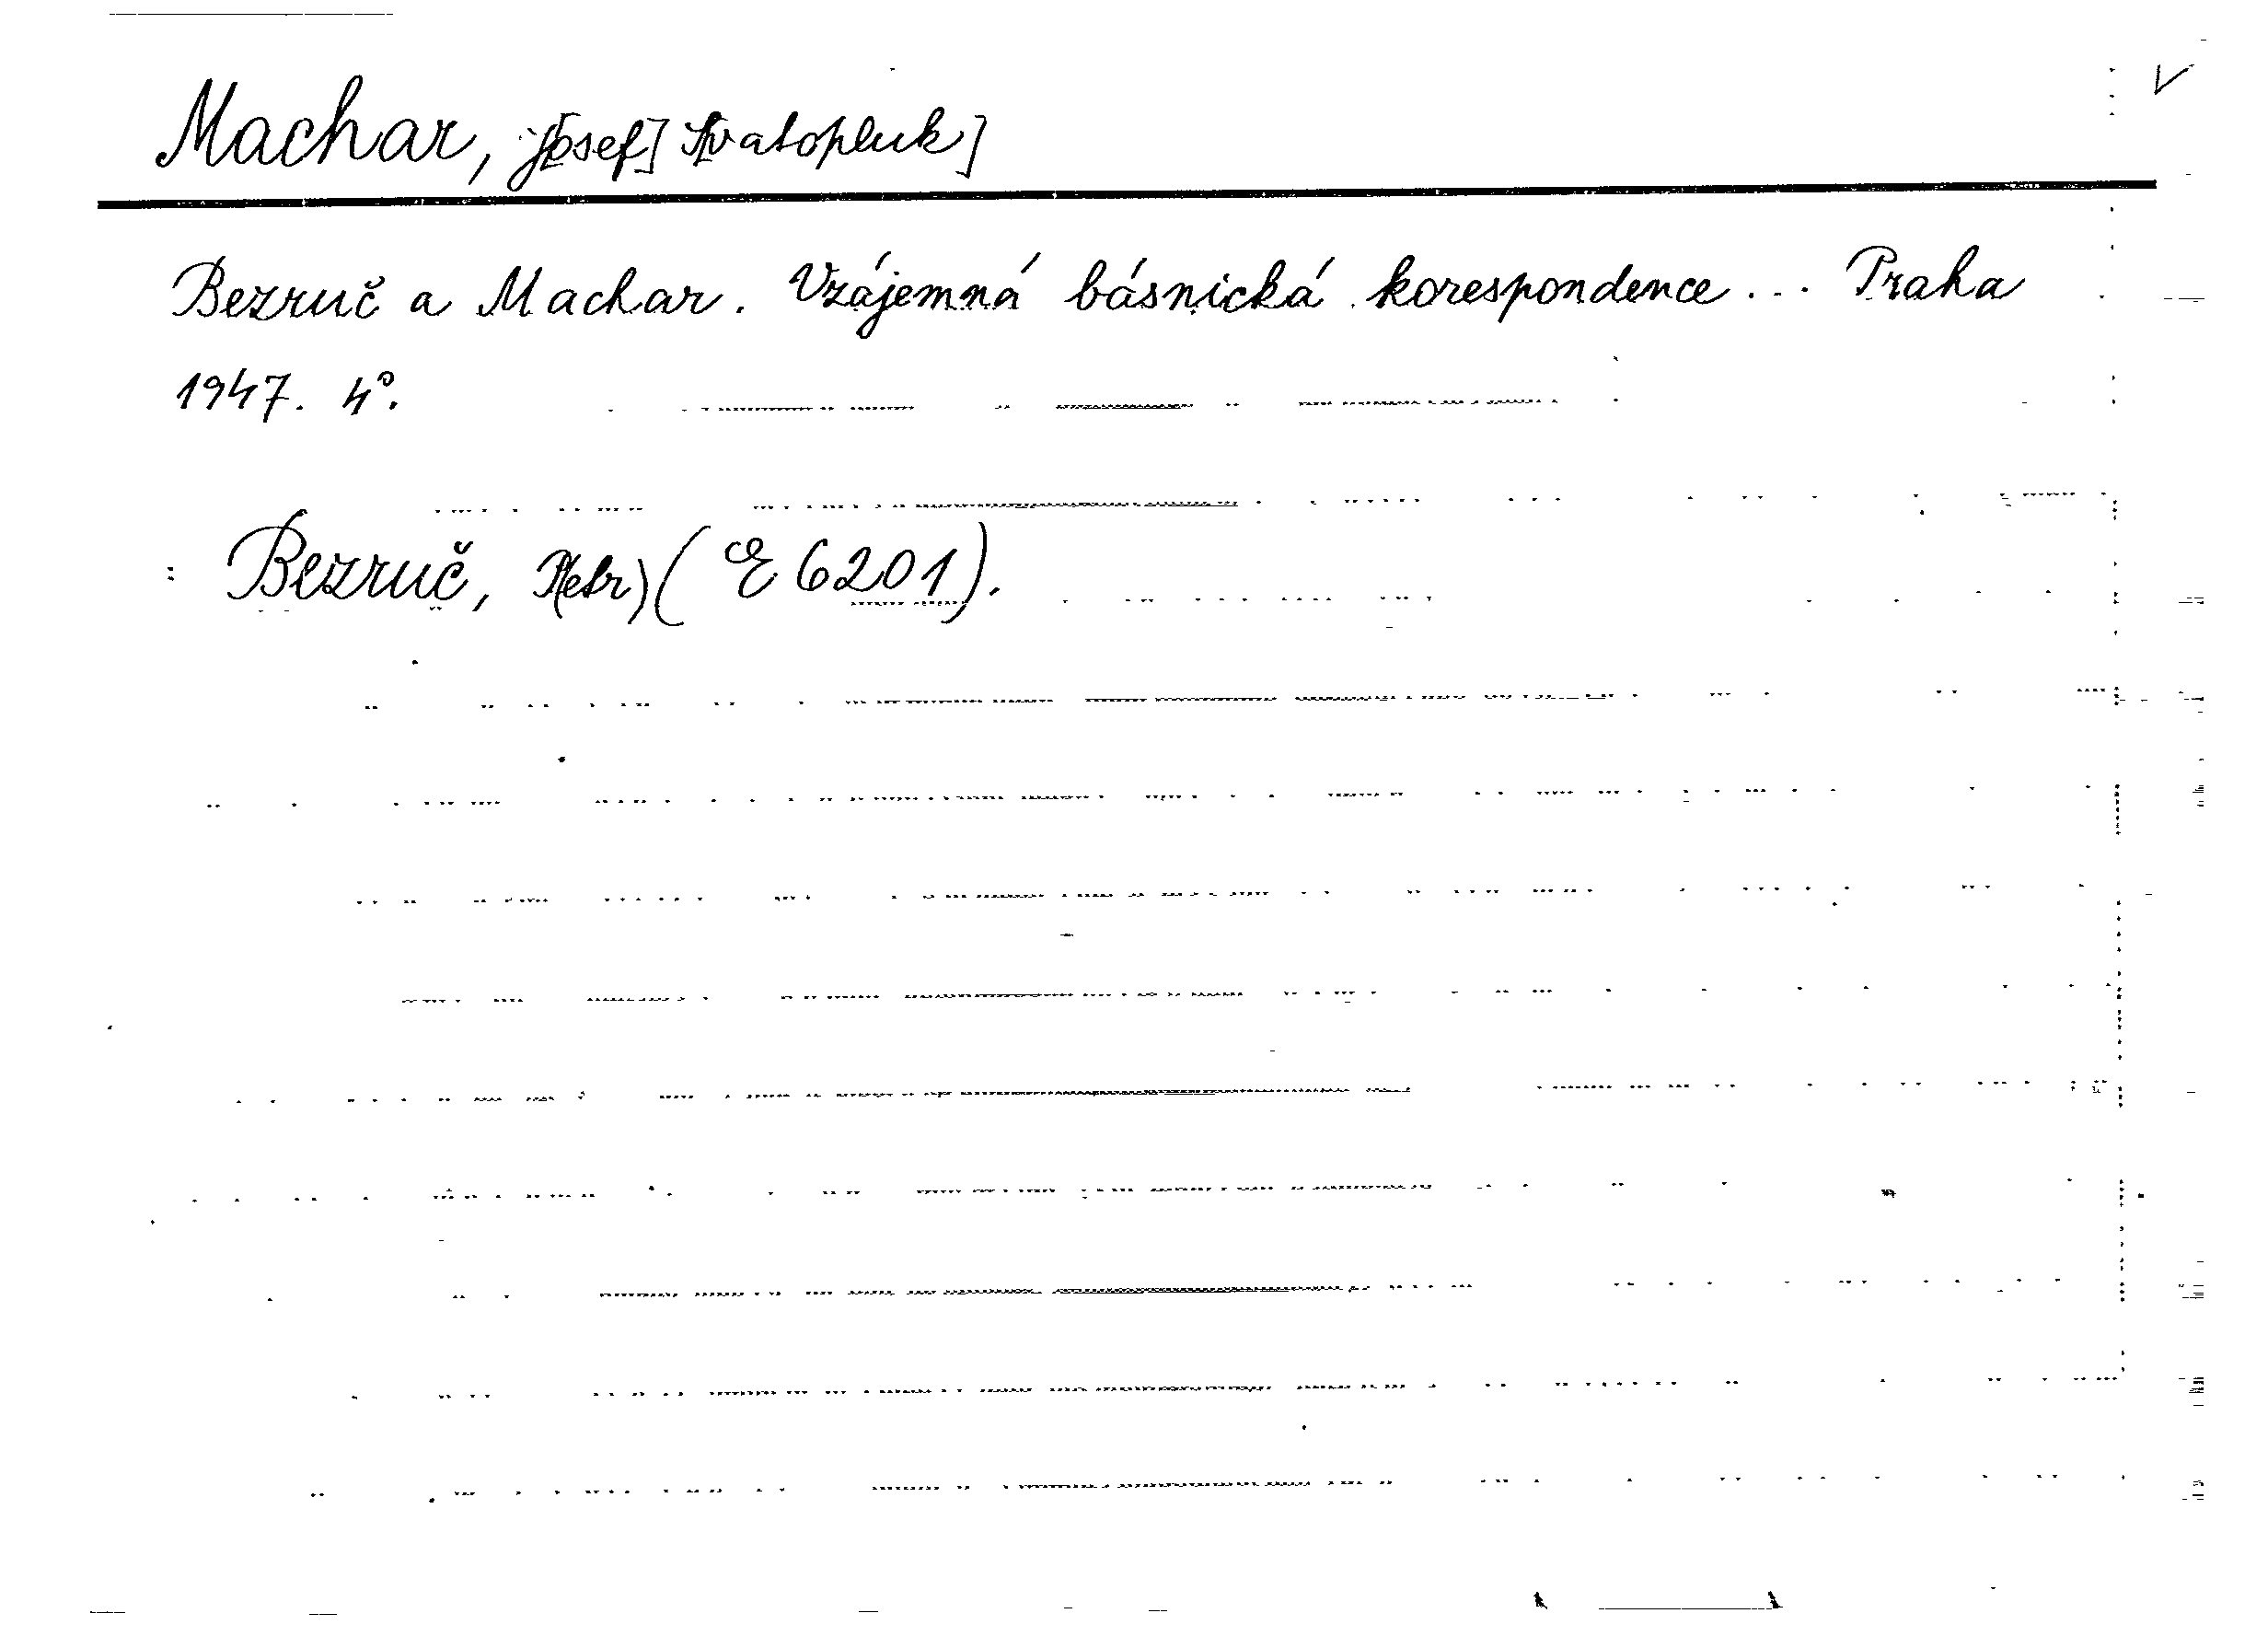 Machar, J[osef] Sv[atopluk]
Bezruč a Machar. Vzájemná básnická korespondence... Praha
1947. 4°.
: Bezruč, P(etr) (E 6201).